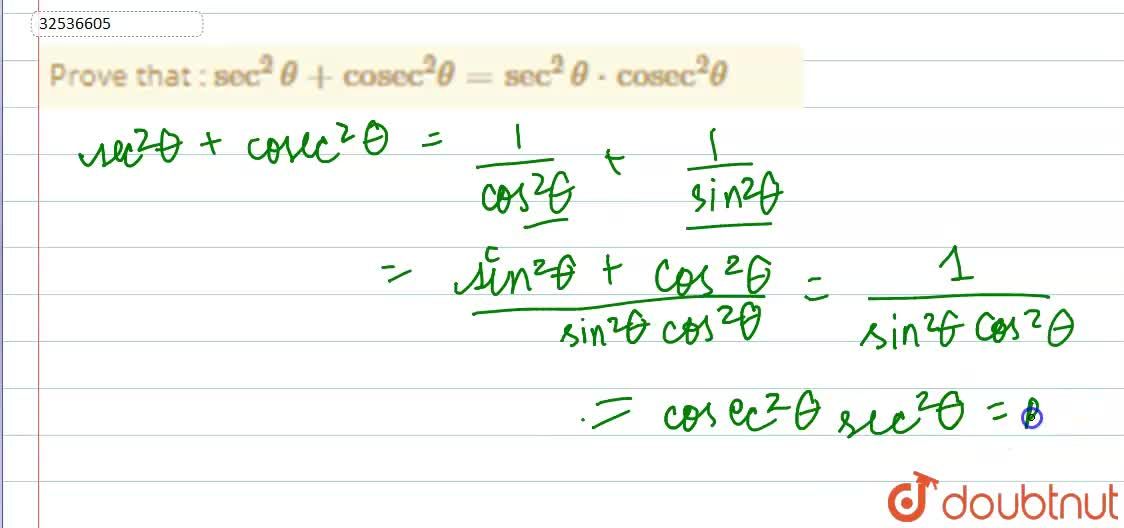 32536605
Prove that : sec² θ + cosec²θ = sec² θ · cosec²θ
sec²θ + cosec²θ = 1/cos²θ + 1/sin²θ
= (sin²θ + cos²θ)/(sin²θ cos²θ) = 1/(sin²θ cos²θ)
= cosec²θ sec²θ =
doubtnut